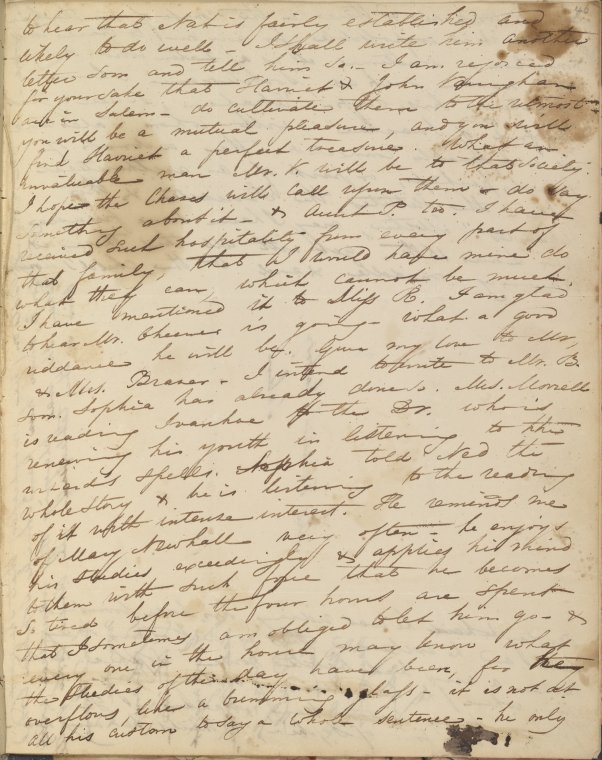 46
to hear that Nat is fairly established and
likely to do well - I shall write him another
letter soon and tell him so. - I am rejoiced
for your sake that Harriet & John Vaughan
are in Salem - do cultivate them to the utmost -
you will be a mutual pleasure, and you will
find Harriet a perfect treasure. What an
invaluable man Mr. V. will be to that Society.
I hope the Chases will call upon them - do say
something about it - & Aunt P. too. I have
received such hospitality from every part of
that family, that I would have mine do
what they can, which cannot be much.
I have mentioned it to Miss R. I am glad
to hear Mr. Cheever is going - what a good
riddance he will be. Give my love to Mr,
& Mrs. Brazer - I intend to write to Mr. B.
soon. Sophia has already done so. Mrs. Morrell
is reading Ivanhoe to the Dr. who is
renewing his youth in listening to the
wizard's spells. Sophia told Ned the
whole story & he is listening to the reading
of it with intense interest. He reminds me
of Mary Newhall very often - he enjoys
his studies exceedingly & applies his mind
to them with such force that he becomes
so tired before the four hours are spent
that I sometimes am obliged to let him go - &
every one in the house may know what
the studies of the day have been, for he
overflows like a burning glass - it is not at
all his custom to say a whole sentence - he only